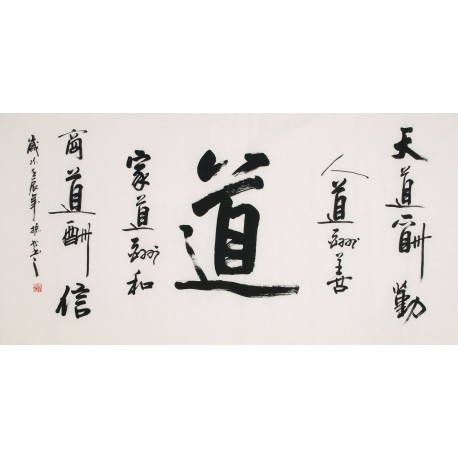 天道酬勤
人道酬善
道
家道酬和
商道酬信
歲次壬辰年